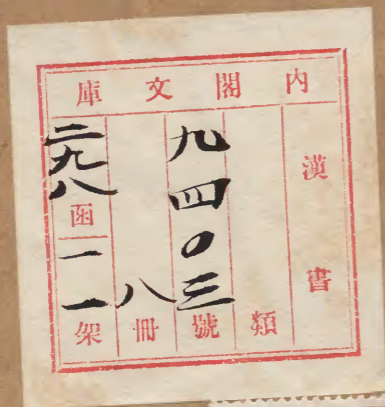 内閣文庫
漢書
類
九四〇三號
八冊
二九八函
一一架